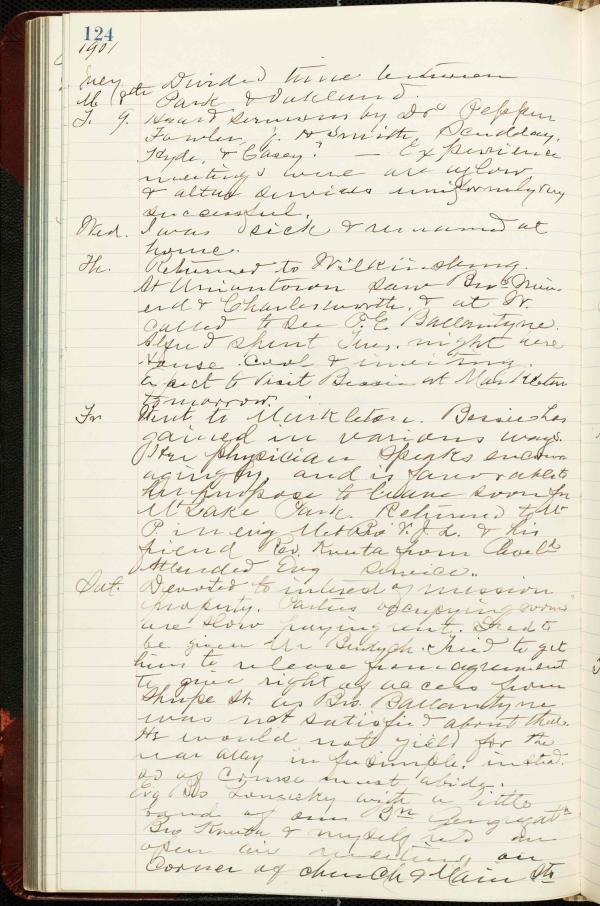 124
1901
Divided time between
M 8th Park & Oakland.
T. 9. Heard sermons by Drs Pepper
Fowler, J. H Smith, Scudday,
Hyde, & Casey? — Experience
meetings were are aglow
& altar services uniformly very
successful.
Wed. I was sick & remained at
home.
Th. Returned to Wilkinsburg.
At Uniontown saw Bros
& Charlesworth, & at W.
called to see P. E. Ballantyne.
Also'd spent Tues. night here
House cool & inviting.
to visit Bessie at Markleton
tomorrow.
Fr Went to Markleton. Bessie has
gained in various ways.
Her physician speaks encour
agingly and is favorable to
her purpose to leave soon for
Mt Lake Park. Returned to Mt
P. in evig Met Bro V. J. L. & his
friend Rev. Knuta from
Attended Evg service.
Sat. Devoted to interest of mission
property. Parties occupying rooms
are slow paying rent.
be given Mr Tried to get
him to release from agreement
to give right of access from
Shupe St. as Bro. Ballantyne
was not satisfied about that.
He would not yield for the
rear alley in fee simple instead.
so of course must abide.
Evg Bro with a little
band of our Bn Congregatn
Bro Knuta & myself held an
open air meeting on
Corner of church & Main Sts